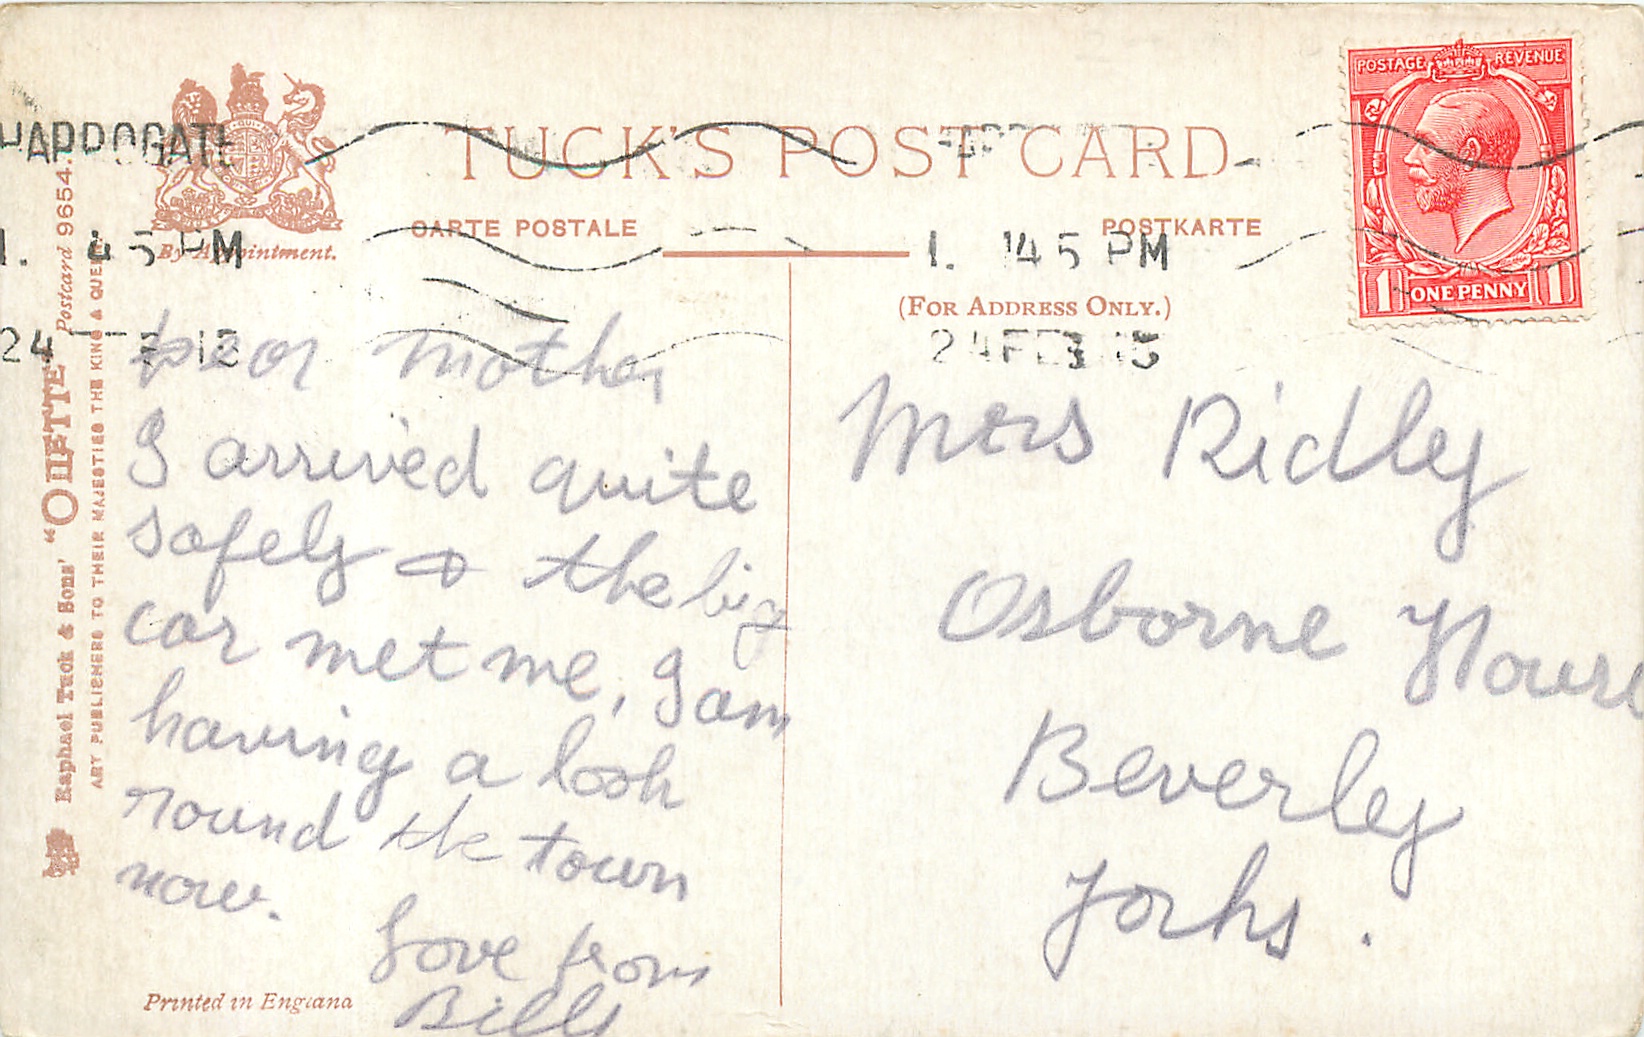 HARROGATE
1. 45 PM
24
TUCK'S POST CARD
CARTE POSTALE
POSTKARTE
By Appointment.
(FOR ADDRESS ONLY.)
1. 45 PM
24 FE
POSTAGE REVENUE
1 ONE PENNY 1
Raphael Tuck & Sons' "OILETTE" Postcard 9654.
ART PUBLISHERS TO THEIR MAJESTIES THE KING & QUEEN
Dear Mother
I arrived quite
safely & the big
car met me, I am
having a look
round the town
now.
Love from
Billy
Mrs Ridly
Osborne House
Beverley
Yorks.
Printed in England